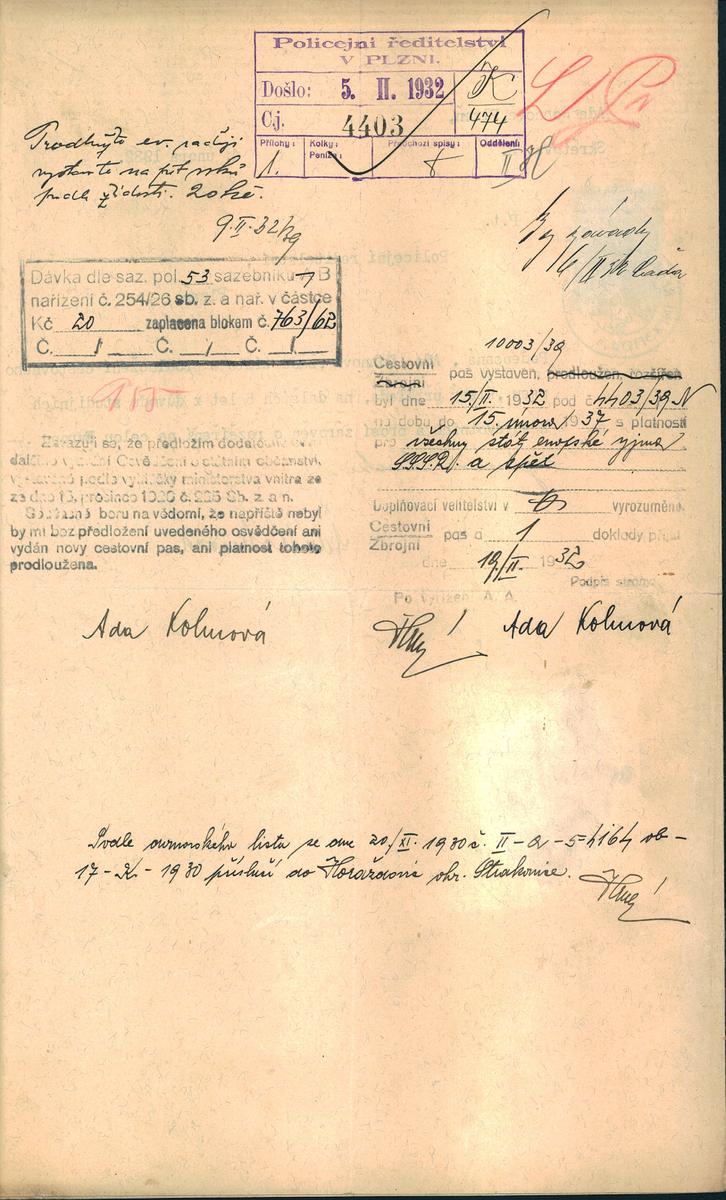 Policejní ředitelství
V PLZNI.
Došlo: 5. II. 1932 K
Čj. 4403 474
Přílohy: Kolky: Předchozí spisy: Oddělení:
Peníze:
1. II
na pět roků
podle žádosti. 20 Kč.
9.II.32
Bez závady
Dávka dle saz. pol. 53 sazebníku B
nařízení č. 254/26 sb. z. a nař. v částce
Kč 20 zaplacena blokem č. 763/62
Č. / Č. / Č. /
10003/32
Cestovní
Zbrojní pas vystaven, prodloužen, rozšířen
byl dne 15./II. 1932 pod č. 4403/32
na dobu do 15. února 1937 s platností
pro všechny státy evropské vyjma
S.S.S.R. a zpět
Doplňovací velitelství v vyrozuměno.
Cestovní
Zbrojní pas a 1 doklady přijal
dne 19./II. 1932
Podpis strany:
Po vyřízení A. A.
Zavazuji se, že předložím dodatečně
dalšího vydání Osvědčení o státním občanství,
vystavené podle vyhlášky ministerstva vnitra ze
ze dne 16. prosince 1926 č. 225 Sb. z. a n.
Současně beru na vědomí, že napříště nebyl
by mi bez předložení uvedeného osvědčení ani
vydán nový cestovní pas, ani platnost tohoto
prodloužena.
Ada Kohnová
Ada Kohnová
Podle domovského listu ze dne 20./XI. 1930 č. II-a-5-4164 ob-
17-K-1930 přísluší do Horažďovic okr. Strakonice.